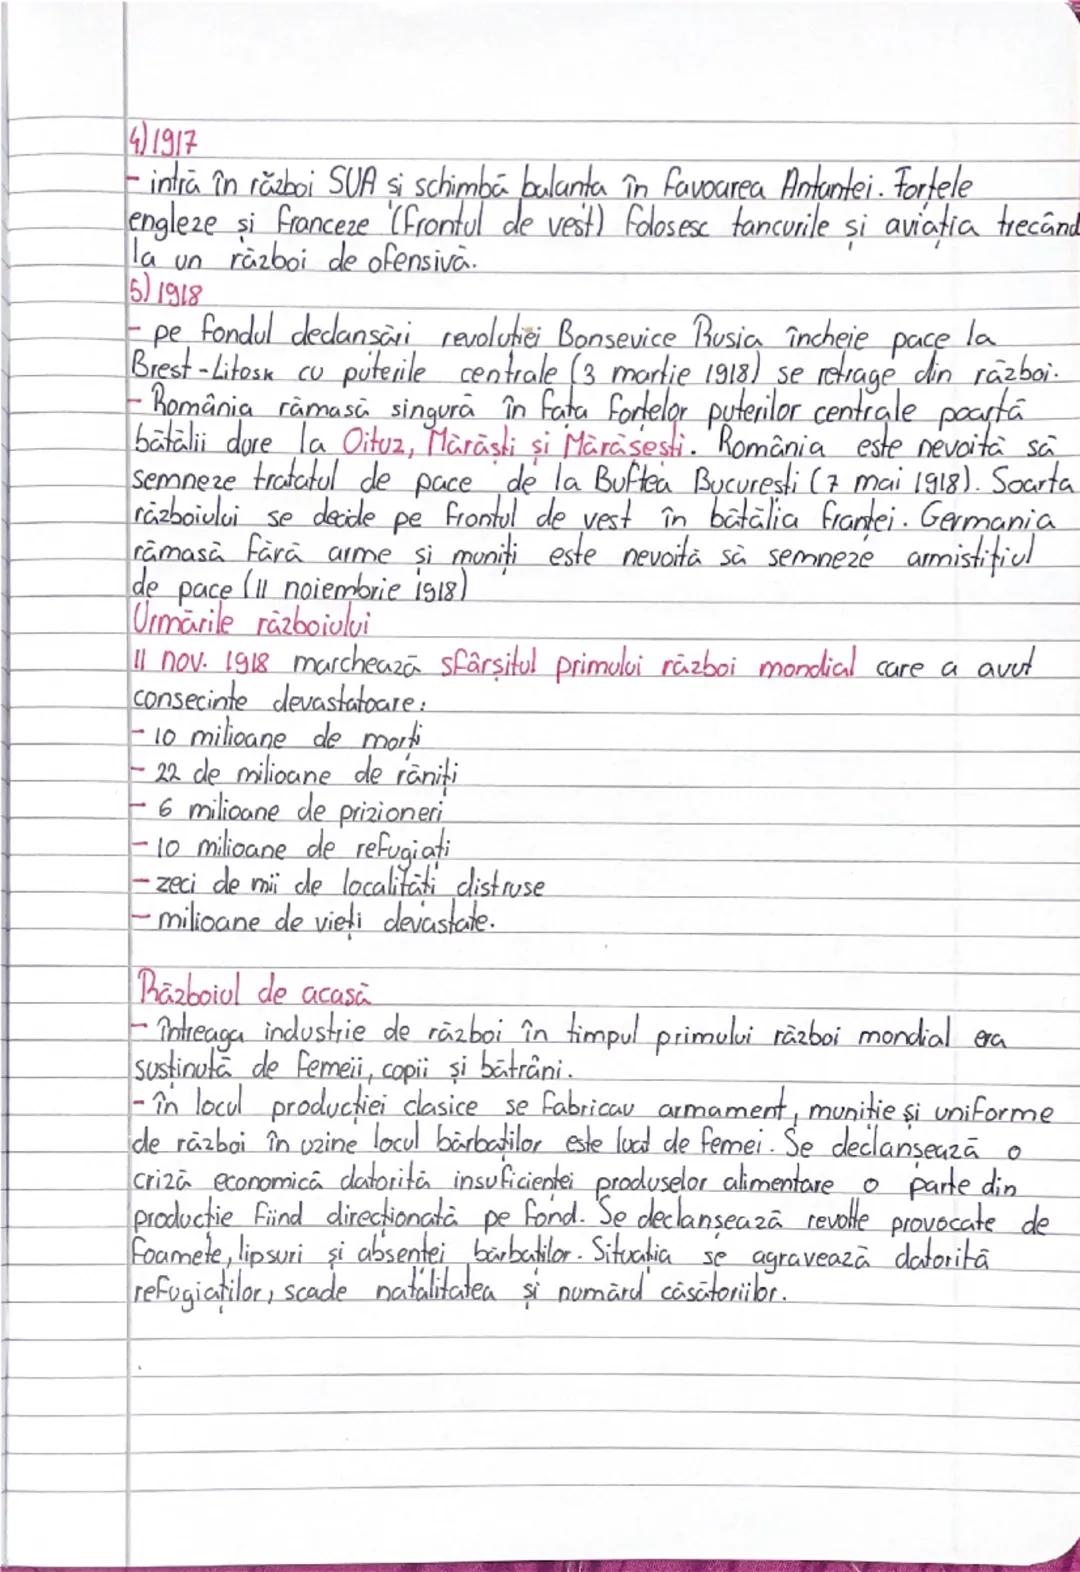 4) 1917
- intră în război SUA și schimbă balanta în favoarea Antantei. Forțele
engleze și franceze (frontul de vest) folosesc tancurile și aviația trecând
la un război de ofensivă.
5) 1918
- pe fondul declansări revoluției Bonsevice Rusia încheie pace la
Brest-Litosk cu puterile centrale (3 martie 1918) se retrage din război.
- România rămasă singură în fața forțelor puterilor centrale poartă
bătălii dure la Oituz, Mărăști și Mărășești. România este nevoită să
semneze tratatul de pace de la Buftea București (7 mai 1918). Soarta
războiului se decide pe frontul de vest în bătălia franței. Germania
rămasă fără arme și muniți este nevoită să semneze armistițiul
de pace (11 noiembrie 1918)
Urmările războiului
11 nov. 1918 marchează sfârșitul primului război mondial care a avut
consecinte devastatoare:
- 10 milioane de morți
- 22 de milioane de răniți
- 6 milioane de prizioneri
- 10 milioane de refugiați
- zeci de mii de localități distruse
- milioane de vieți devastate.
Războiul de acasă
- întreaga industrie de război în timpul primului război mondial era
susținută de femeii, copii și bătrâni.
- în locul producției clasice se fabricau armament, muniție și uniforme
de război în uzine locul bărbaților este luat de femei. Se declanșează o
criză economică datorită insuficienței produselor alimentare o parte din
producție fiind direcționată pe fond. Se declanșează revolte provocate de
foamete, lipsuri și absenței bărbaților. Situația se agravează datorită
refugiaților, scade natalitatea și numărul căsătoriilor.